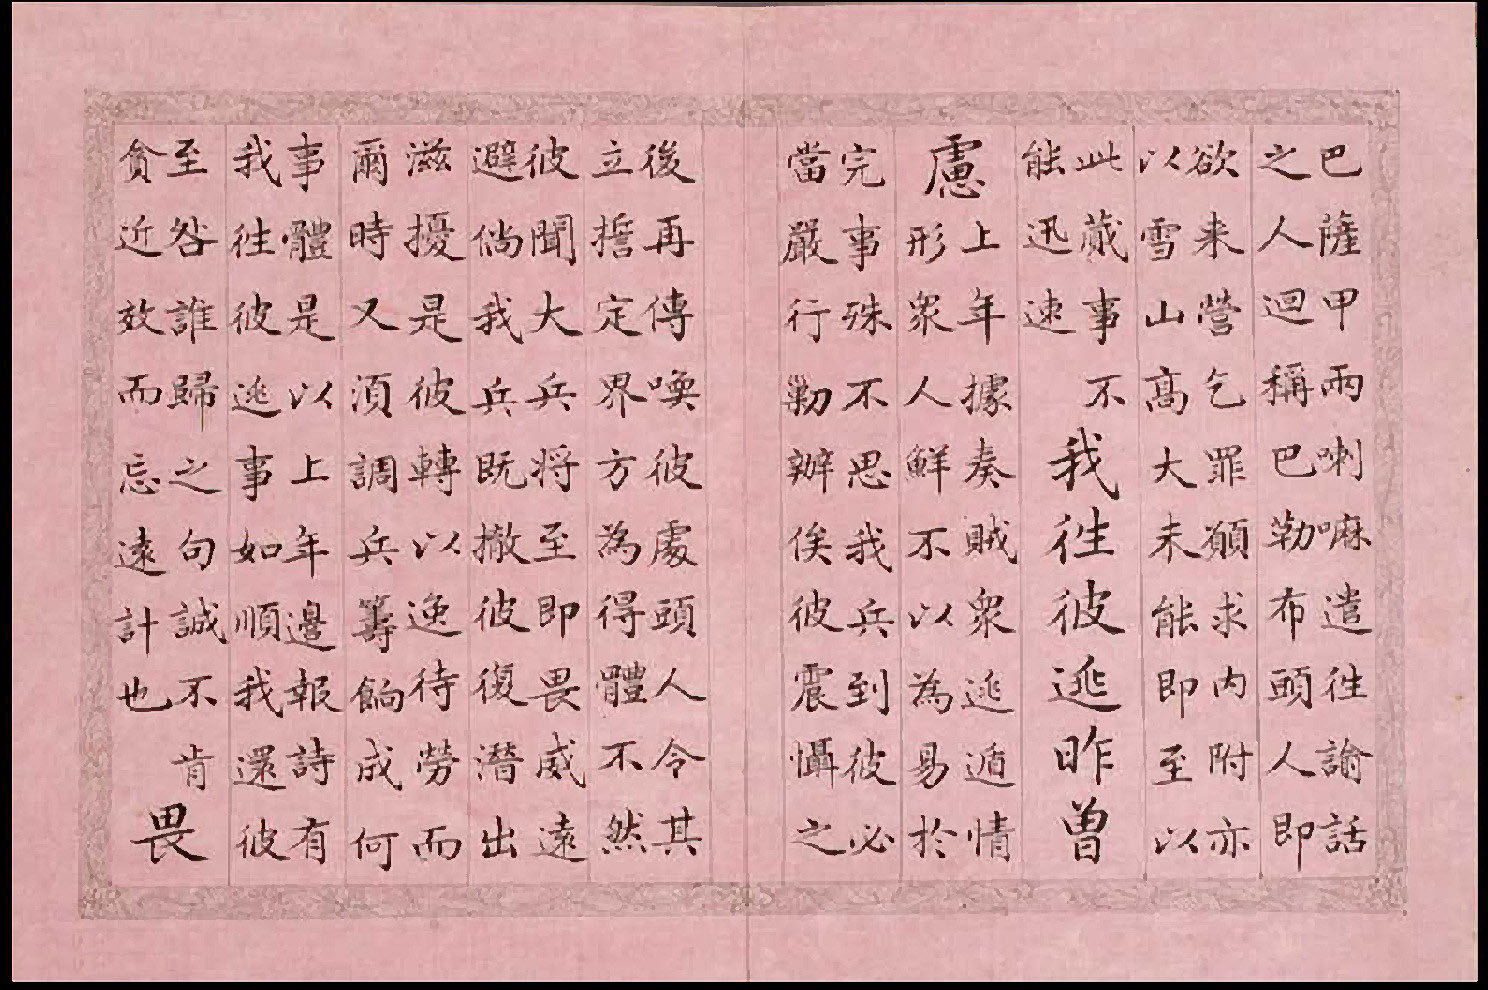 巴薩甲兩喇嘛遣徃諭話
之人迴稱巴勒布頭人即
欲来營乞罪願求内附亦
以雪山高大未能即至以
此蕆事不
能迅速
我徃彼逃昨曾
慮
上年據奏賊衆逃遁情
形衆人鮮不以為易於
完事殊不思我兵到彼必
當嚴行勦辦俟彼震懾之
後再傳喚彼處頭人令其
立誓定界方為得體不然
彼聞大兵将至即畏威遠
避倘我兵既撤彼復潛出
滋擾是彼轉以逸待勞而
爾時又須調兵籌餉成何
事體是以上年邊報詩有
我徃彼逃事如順我還彼
至咎誰歸之句誠不肯
貪近效而忘遠計也
畏